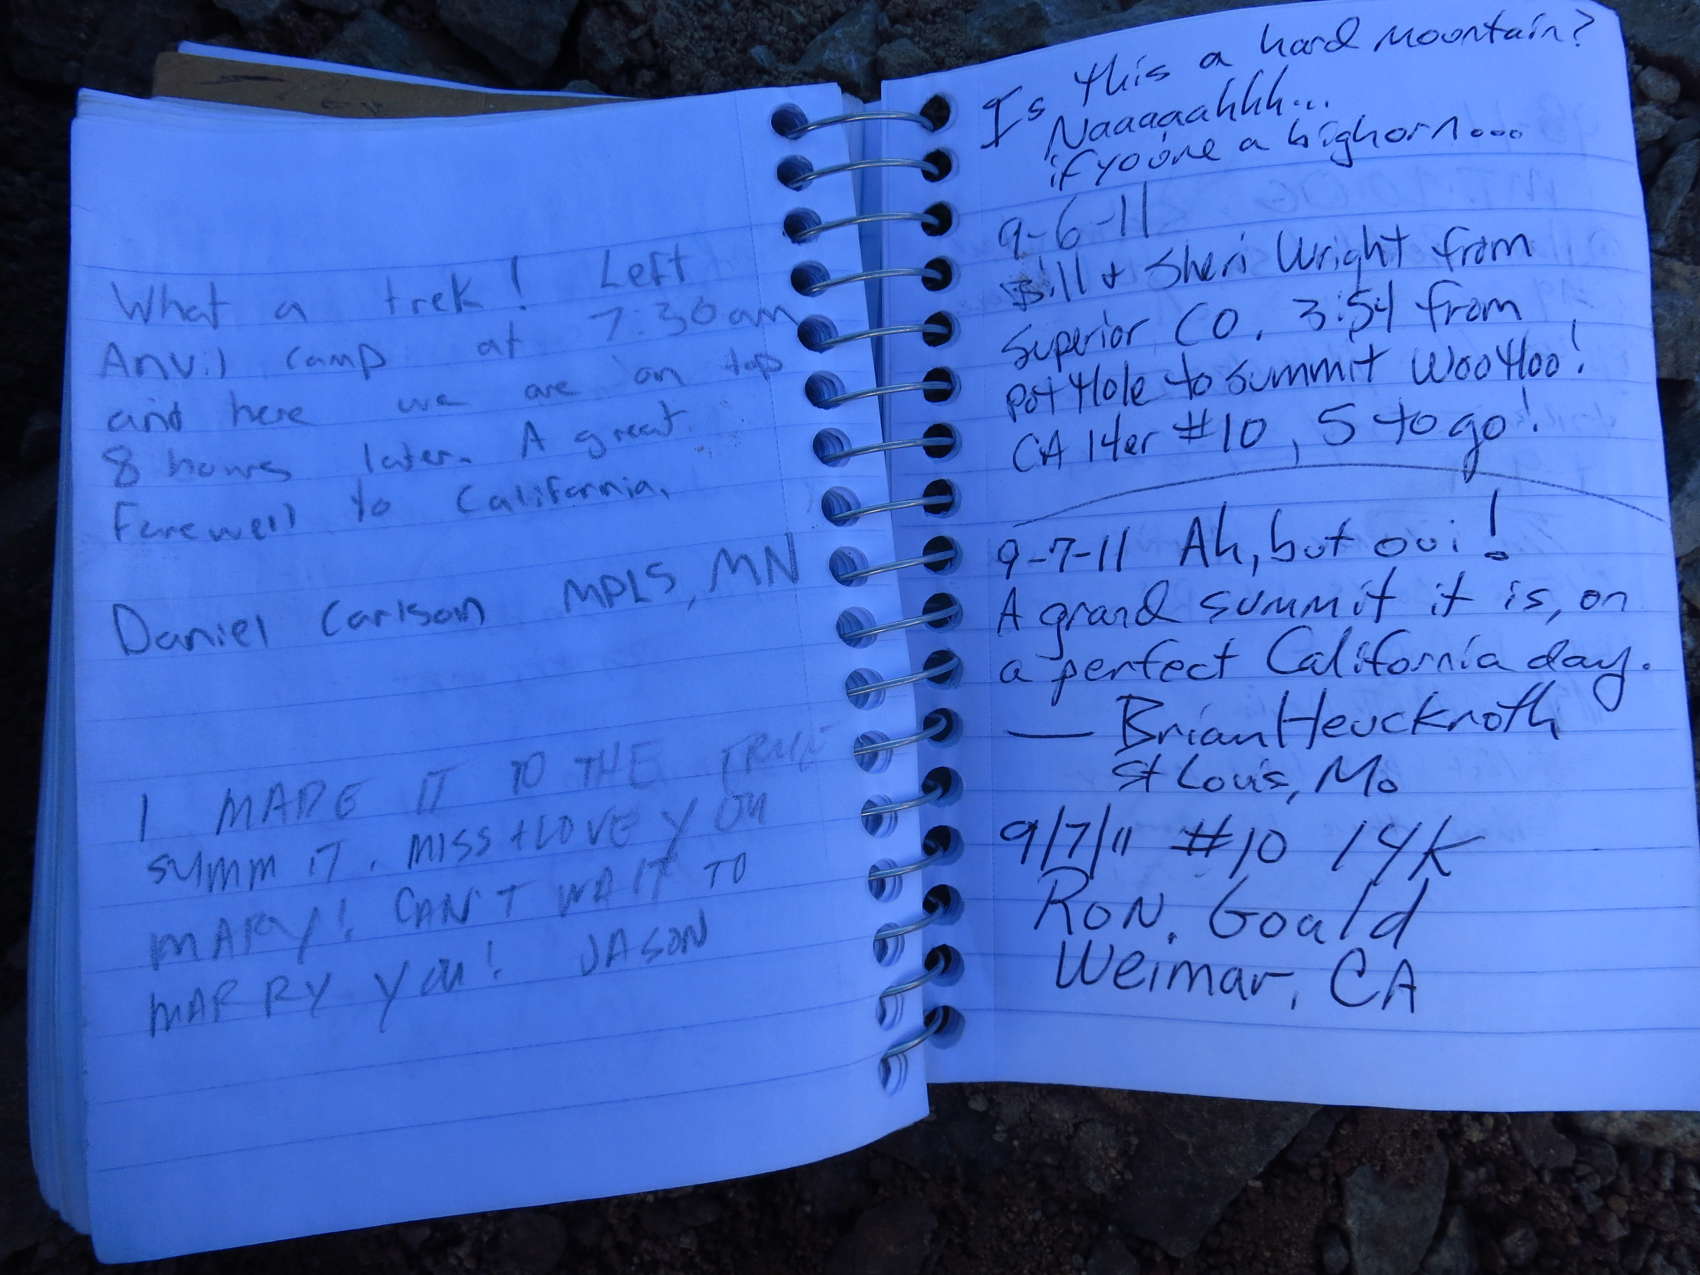 What a trek! Left
Anvil camp at 7:30am
and here we are on top
8 hours later. A great
Farewell to California.
Daniel Carlson MPLS, MN
I MADE IT TO THE TRUE
SUMMIT. MISS + LOVE YOU
MARY! CAN'T WAIT TO
MARRY YOU! JASON
Is this a hard mountain?
Naaaaahhh...
if you're a bighorn...
9-6-11
Bill & Sheri Wright from
Superior CO. 3:54 from
pot Hole to summit WooHoo!
CA 14er #10, 5 to go!
9-7-11 Ah, but oui!
A grand summit it is, on
a perfect California day.
— Brian Heuckroth
St Louis, Mo
9/7/11 #10 14K
RON. Goald
Weimar, CA